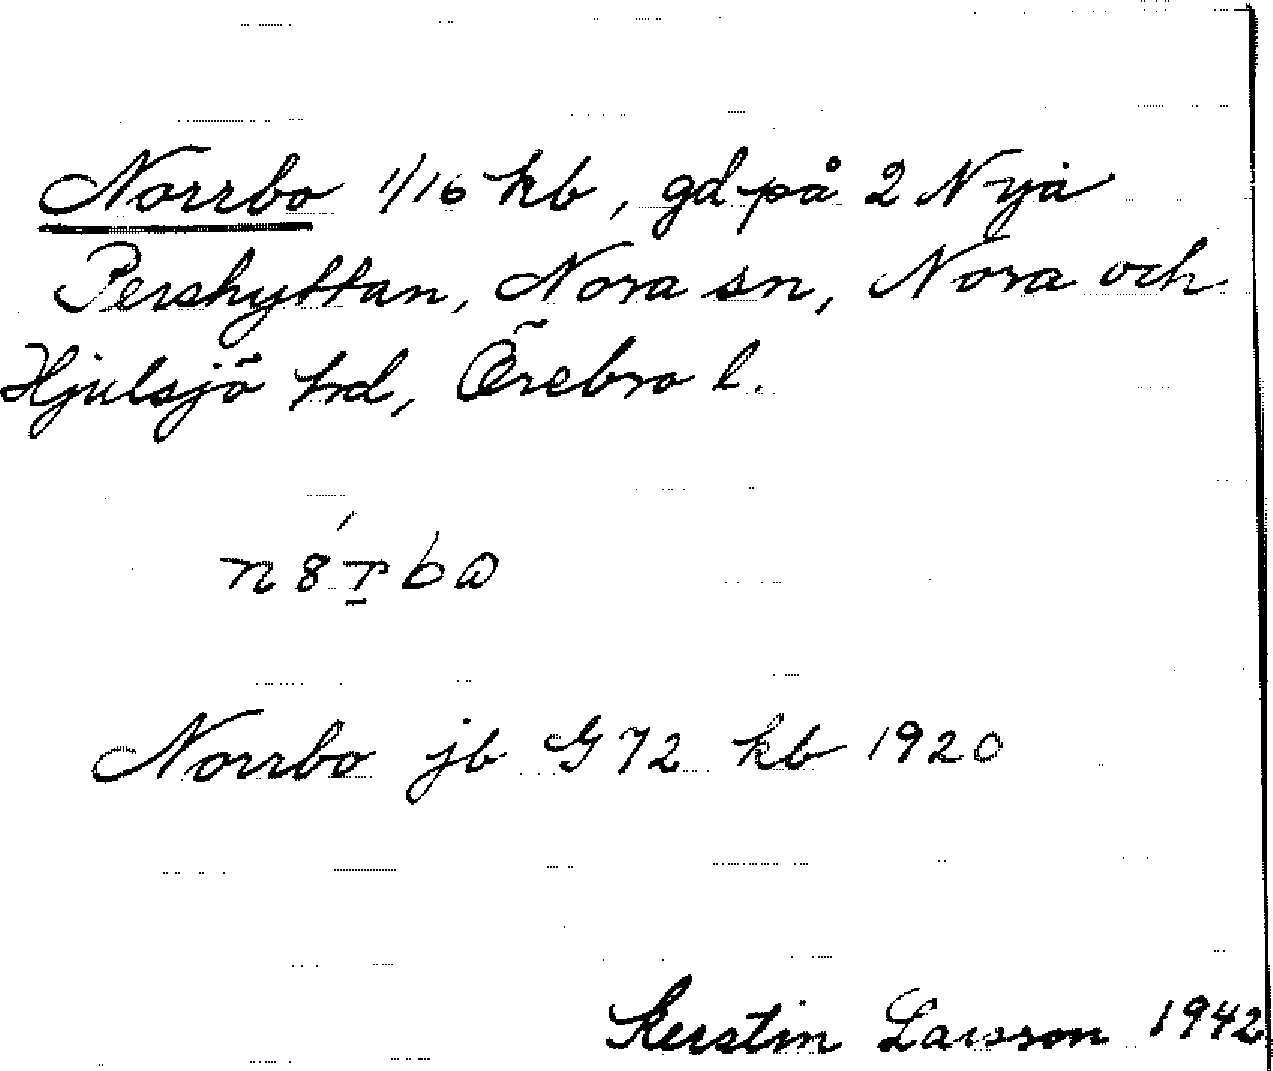 Norrbo 1/16 kb, gd på 2 Nya
Pershyttan, Nora sn, Nora och
Hjulsjö hd, Örebro l.
Norrbo jb G 72 kb 1920
Kerstin Larsson 1942